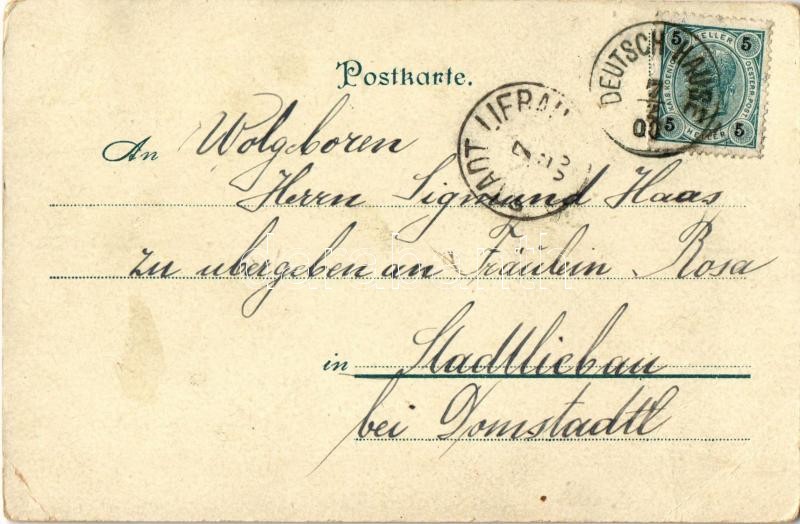 Postkarte.
5 HELLER 5
KAIS. KOENIGL. OESTERR. POST.
5 HELLER 5
DEUTSCH HAUSE
00
STADT LIEBAU
An Wolgeboren
Herrn Sigmund Haas
zu ubergeben an Fräulein Rosa
in Stadtliebau
bei Domstadtl